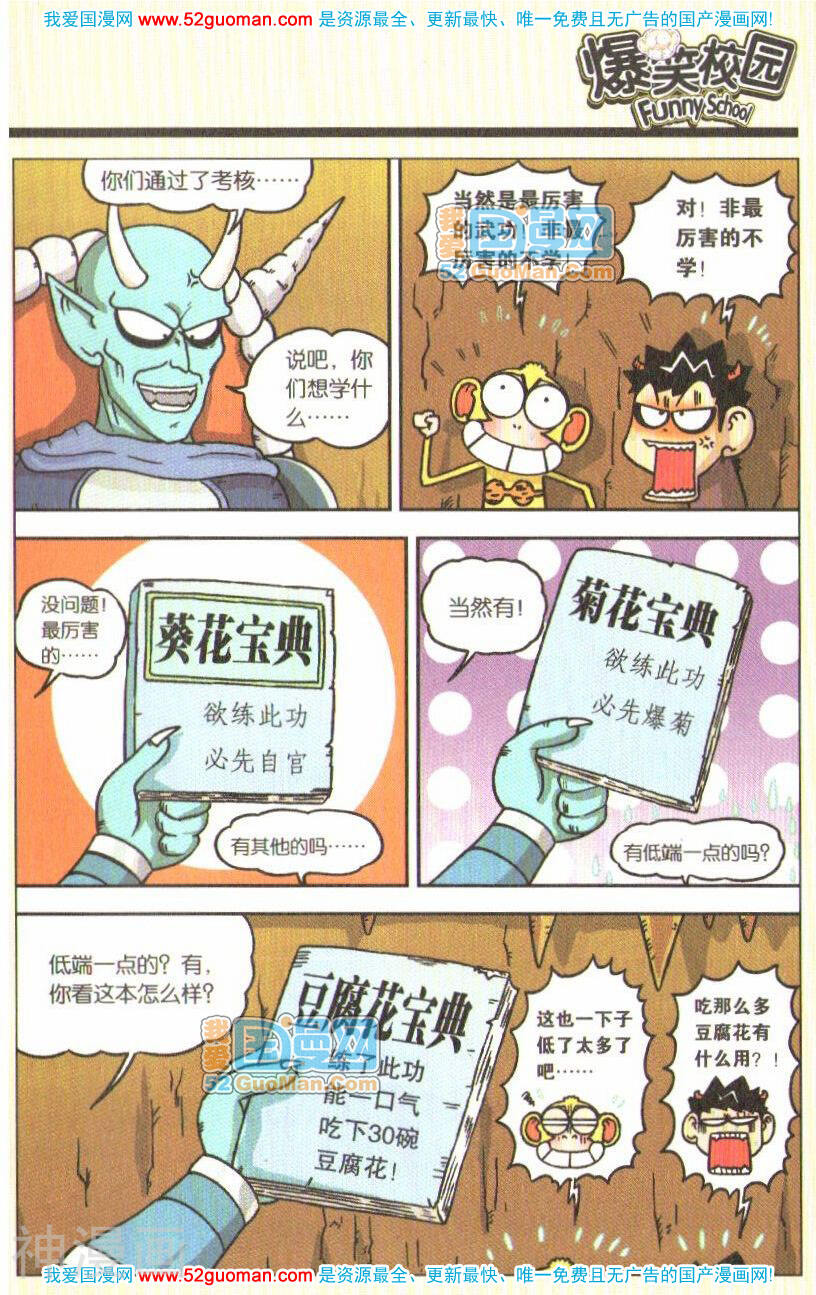 我爱国漫网 www.52guoman.com 是资源最全、更新最快、唯一免费且无广告的国产漫画网!
爆笑校园
Funny School
你们通过了考核……
说吧，你
们想学什
么……
当然是最厉害
的武功！非最
厉害的不学！
我爱国漫网
52GuoMan.com
对！非最
厉害的不
学！
没问题！
最厉害
的……
葵花宝典
欲练此功
必先自宫
有其他的吗……
当然有!
菊花宝典
欲练此功
必先爆菊
有低端一点的吗?
低端一点的？有，
你看这本怎么样?
豆腐花宝典
练了此功
能一口气
吃下30碗
豆腐花！
我爱国漫网
52GuoMan.com
这也一下子
低了太多了
吧……
吃那么多
豆腐花有
什么用？！
神漫画
我爱国漫网 www.52guoman.com 是资源最全、更新最快、唯一免费且无广告的国产漫画网!